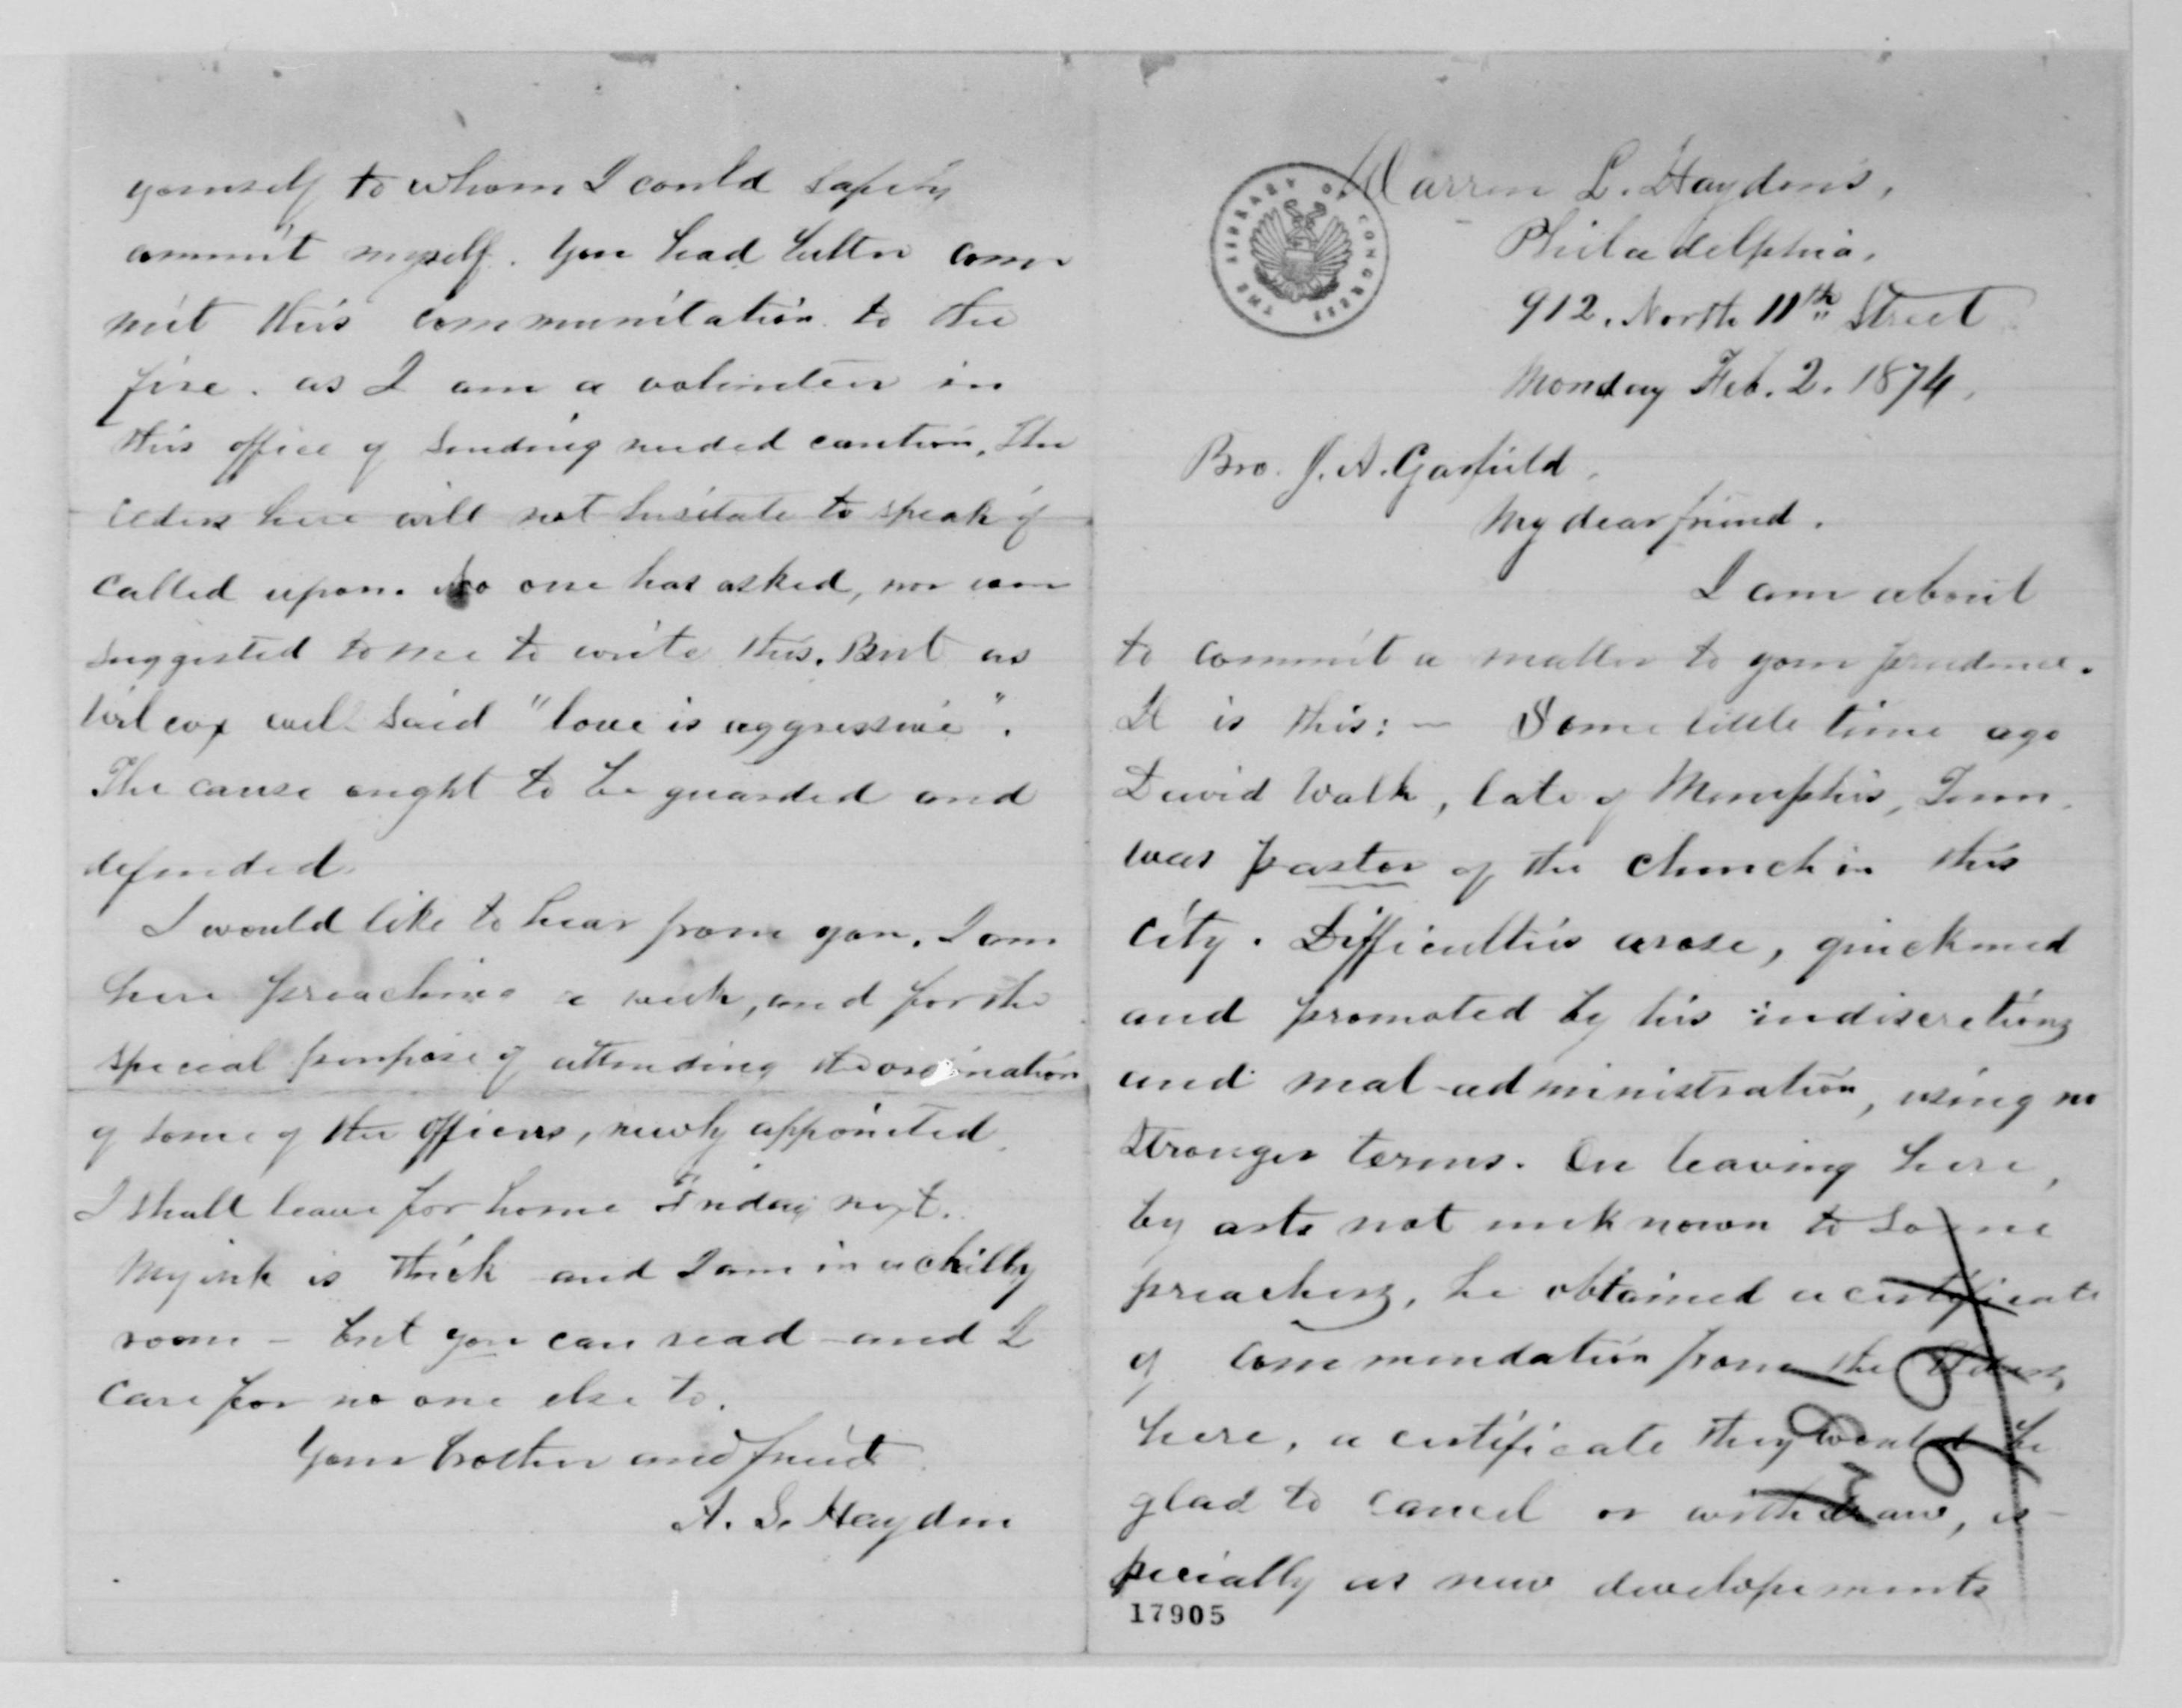 yourself to whom I could safely
commit myself. You had better com
mit this communication to the
fire. as I am a volunteer in
this office of sending needed caution. The
elders here will not hesitate to speak if
called upon. No one has asked, nor even
suggested to me to write this. But as
Wilcox well said "love is aggressive".
The cause ought to be guarded and
defended.
I would like to hear from you. I am
here preaching a week, and for the
special purpose of attending the ordination
of some of the officers, newly appointed.
I shall leave for home Friday next.
My ink is thick and I am in a chilly
room - but you can read and I
care for no one else to.
Your brother and friend
A. S. Hayden
Warren L. Hayden's,
Philadelphia,
912. North 11th Street
Monday Feb. 2. 1874.
Bro. J. A. Garfield.
My dear friend.
I am about
to commit a matter to your prudence.
It is this: - Some little time ago
David Walk, late of Memphis, Tenn.
was pastor of the church in this
city. Difficulties arose, quickened
and promoted by his indiscretions
and mal-administration, using no
stronger terms. On leaving here,
by arts not unknown to some
preachers, he obtained a certificate
of commendation from the Elders
here, a certificate they would be
glad to cancel or withdraw, es-
pecially as new developements
17905
THE LIBRARY OF CONGRESS